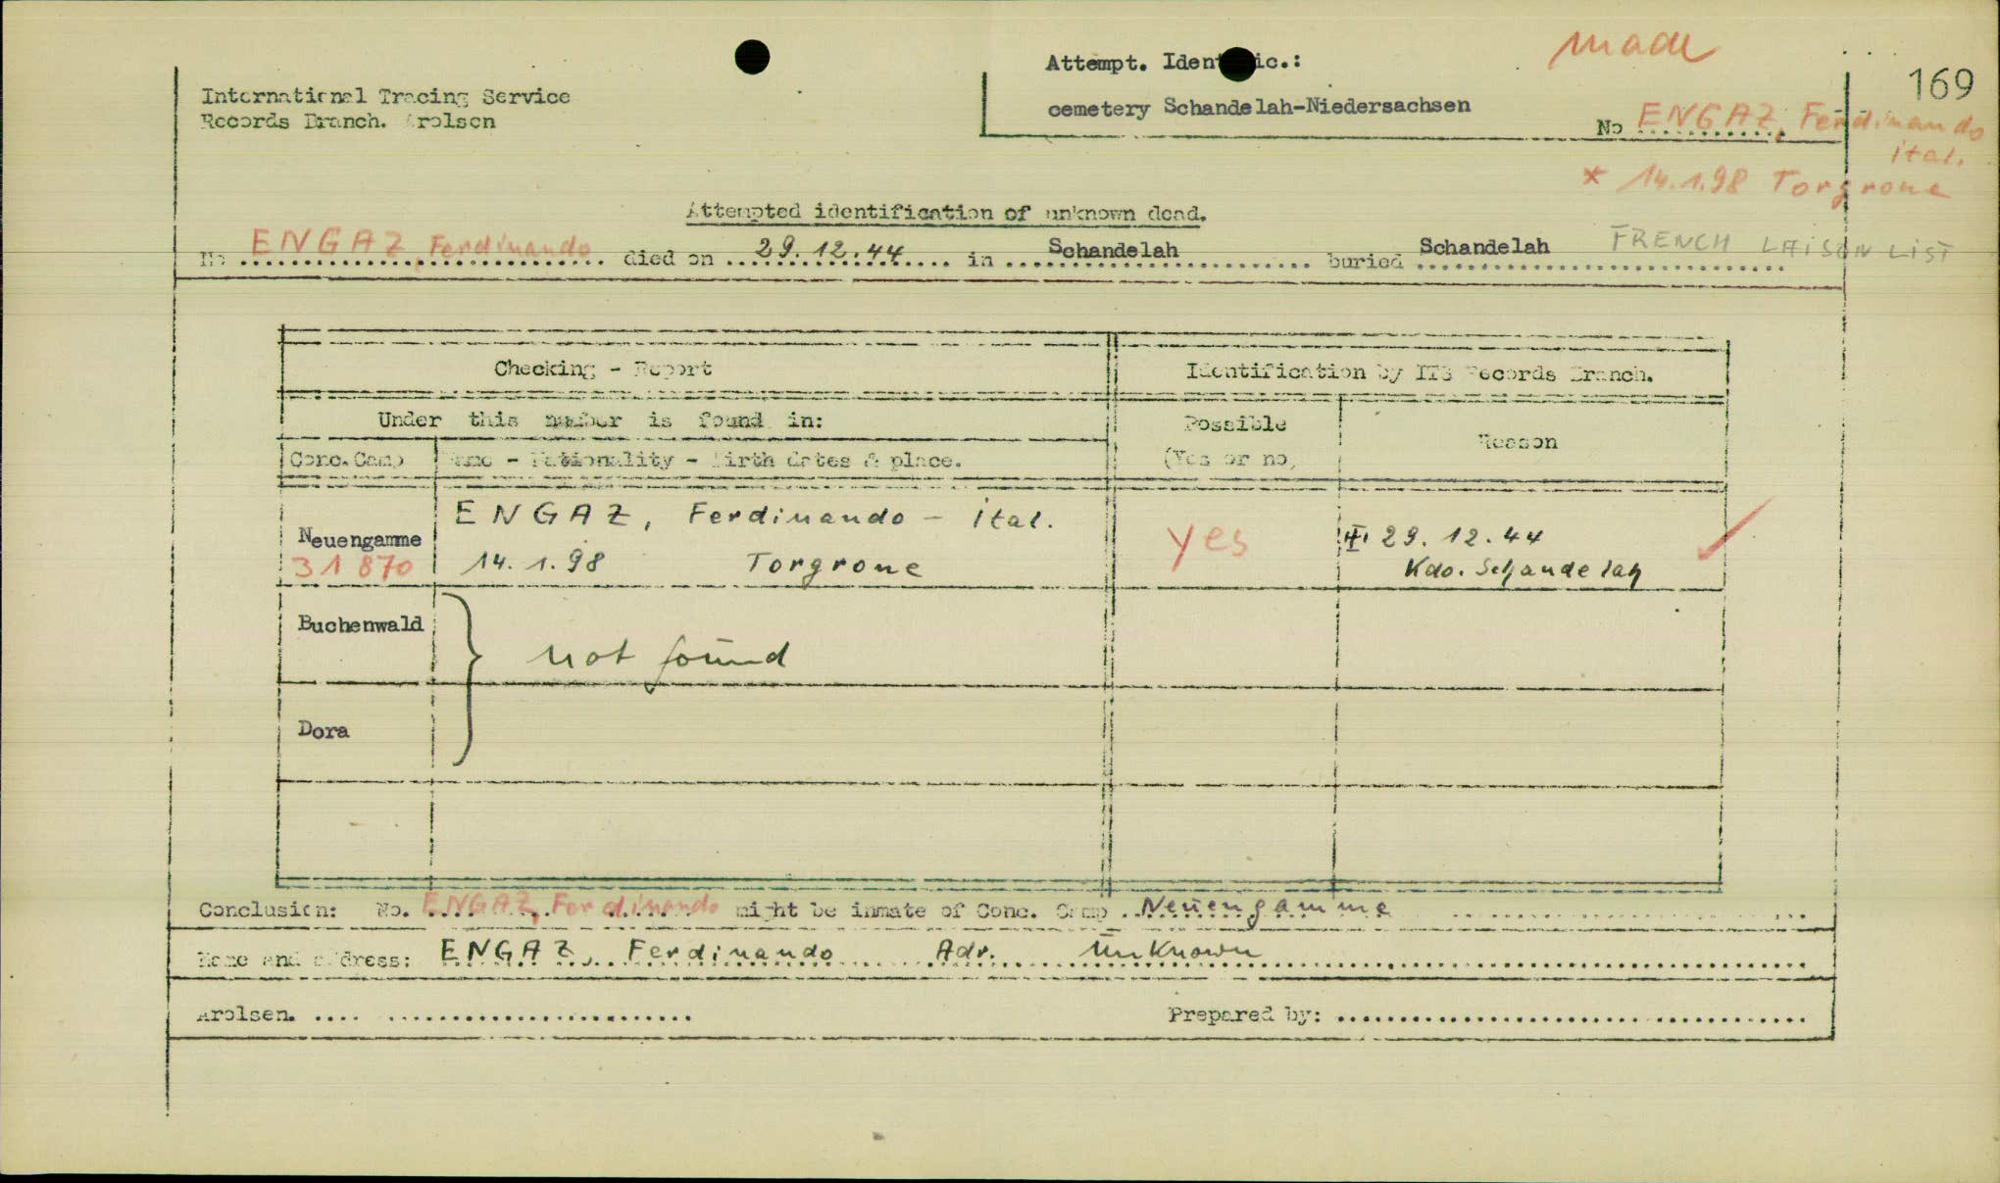 made
Attempt. Identific.:
169
International Tracing Service
cemetery Schandelah-Niedersachsen
Records Branch. Arolsen
No ENGAZ, Ferdinando
ital.
* 14.1.98 Torgrone
Attempted identification of unknown dead.
No ENGAZ, Ferdinando died on 29.12.44 in Schandelah buried Schandelah FRENCH LAISON LIST
Checking - Report
Identification by ITS Records Branch.
Under this number is found in:
Possible
(Yes or no)
Reason
Conc. Camp
Name - Nationality - Birth dates & place.
Neuengamme
31870
ENGAZ, Ferdinando - ital.
14.1.98 Torgrone
yes
29.12.44
Kdo. Schandelah
Buchenwald
not found
Dora
Conclusion: No. ENGAZ, Ferdinando might be inmate of Conc. Camp Neuengamme
Name and address: ENGAZ, Ferdinando Adr. unknown
Arolsen.
Prepared by: